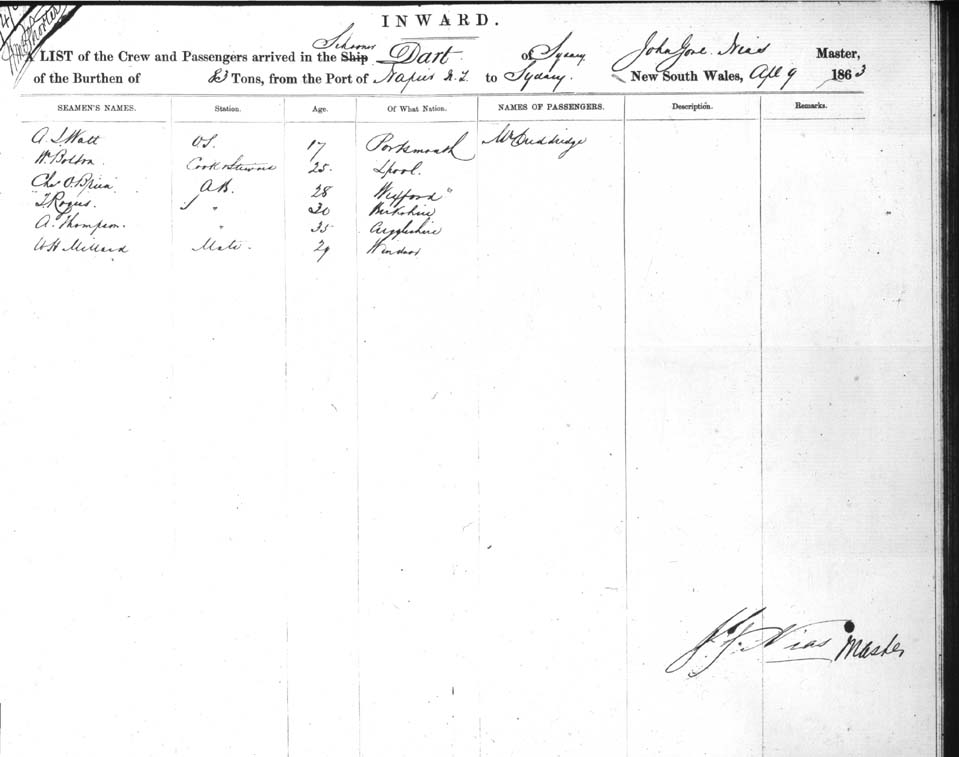 INWARD.
Schooner
A LIST of the Crew and Passengers arrived in the Ship Dart of Sydney John Gore Nias Master,
of the Burthen of 83 Tons, from the Port of Napier N.Z to Sydney. New South Wales, Apl 9 1863
SEAMEN'S NAMES. Station. Age. Of What Nation. NAMES OF PASSENGERS. Description. Remarks.
A. Watt O.S. 17 Portsmouth Mr
W. Bolton. Cook & Steward 25. Lpool.
Chs O.Brien A.B. 28 Wexford "
T. " 30 Berkshire
A. Thompson. " 35 Argyleshire
W H Millard Mate. 29 Windsor
J. G. Nias Master